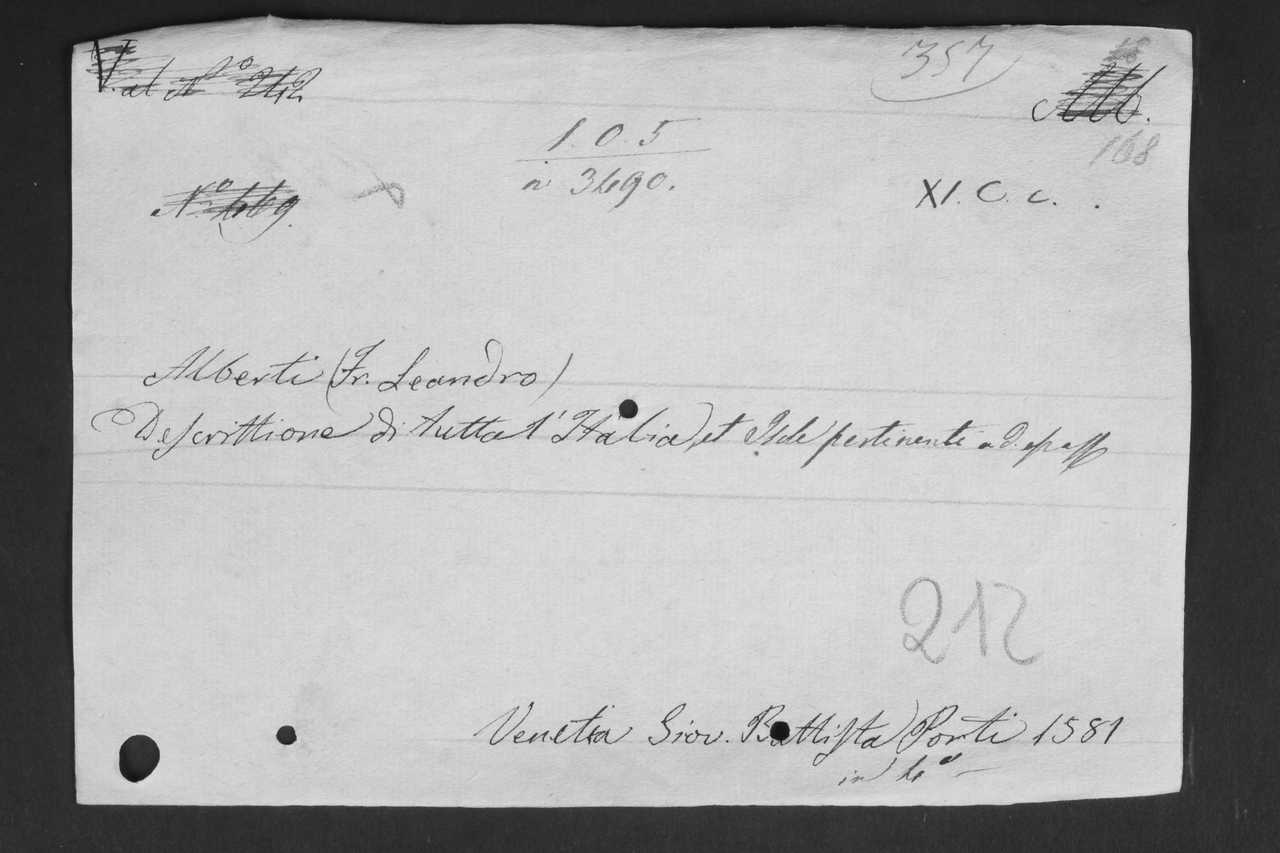 V. al N.º 242
357
Alb.
168
1.0.5
in 3490.
XI. C. c.
Nº 469.
Alberti (Fr. Leandro)
Descrittione di tutta l'Italia, et Isole pertinenti ad essa
212
Venetia Giov. Battista Porti 1581
in 4º